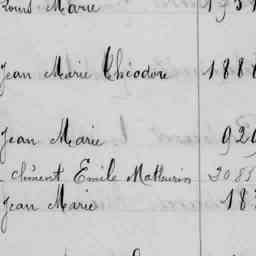 Louis Marie 1931
Jean Marie Théodore 188
Jean Marie 92
Clément Emile Mathurin 2083
Jean Marie 18